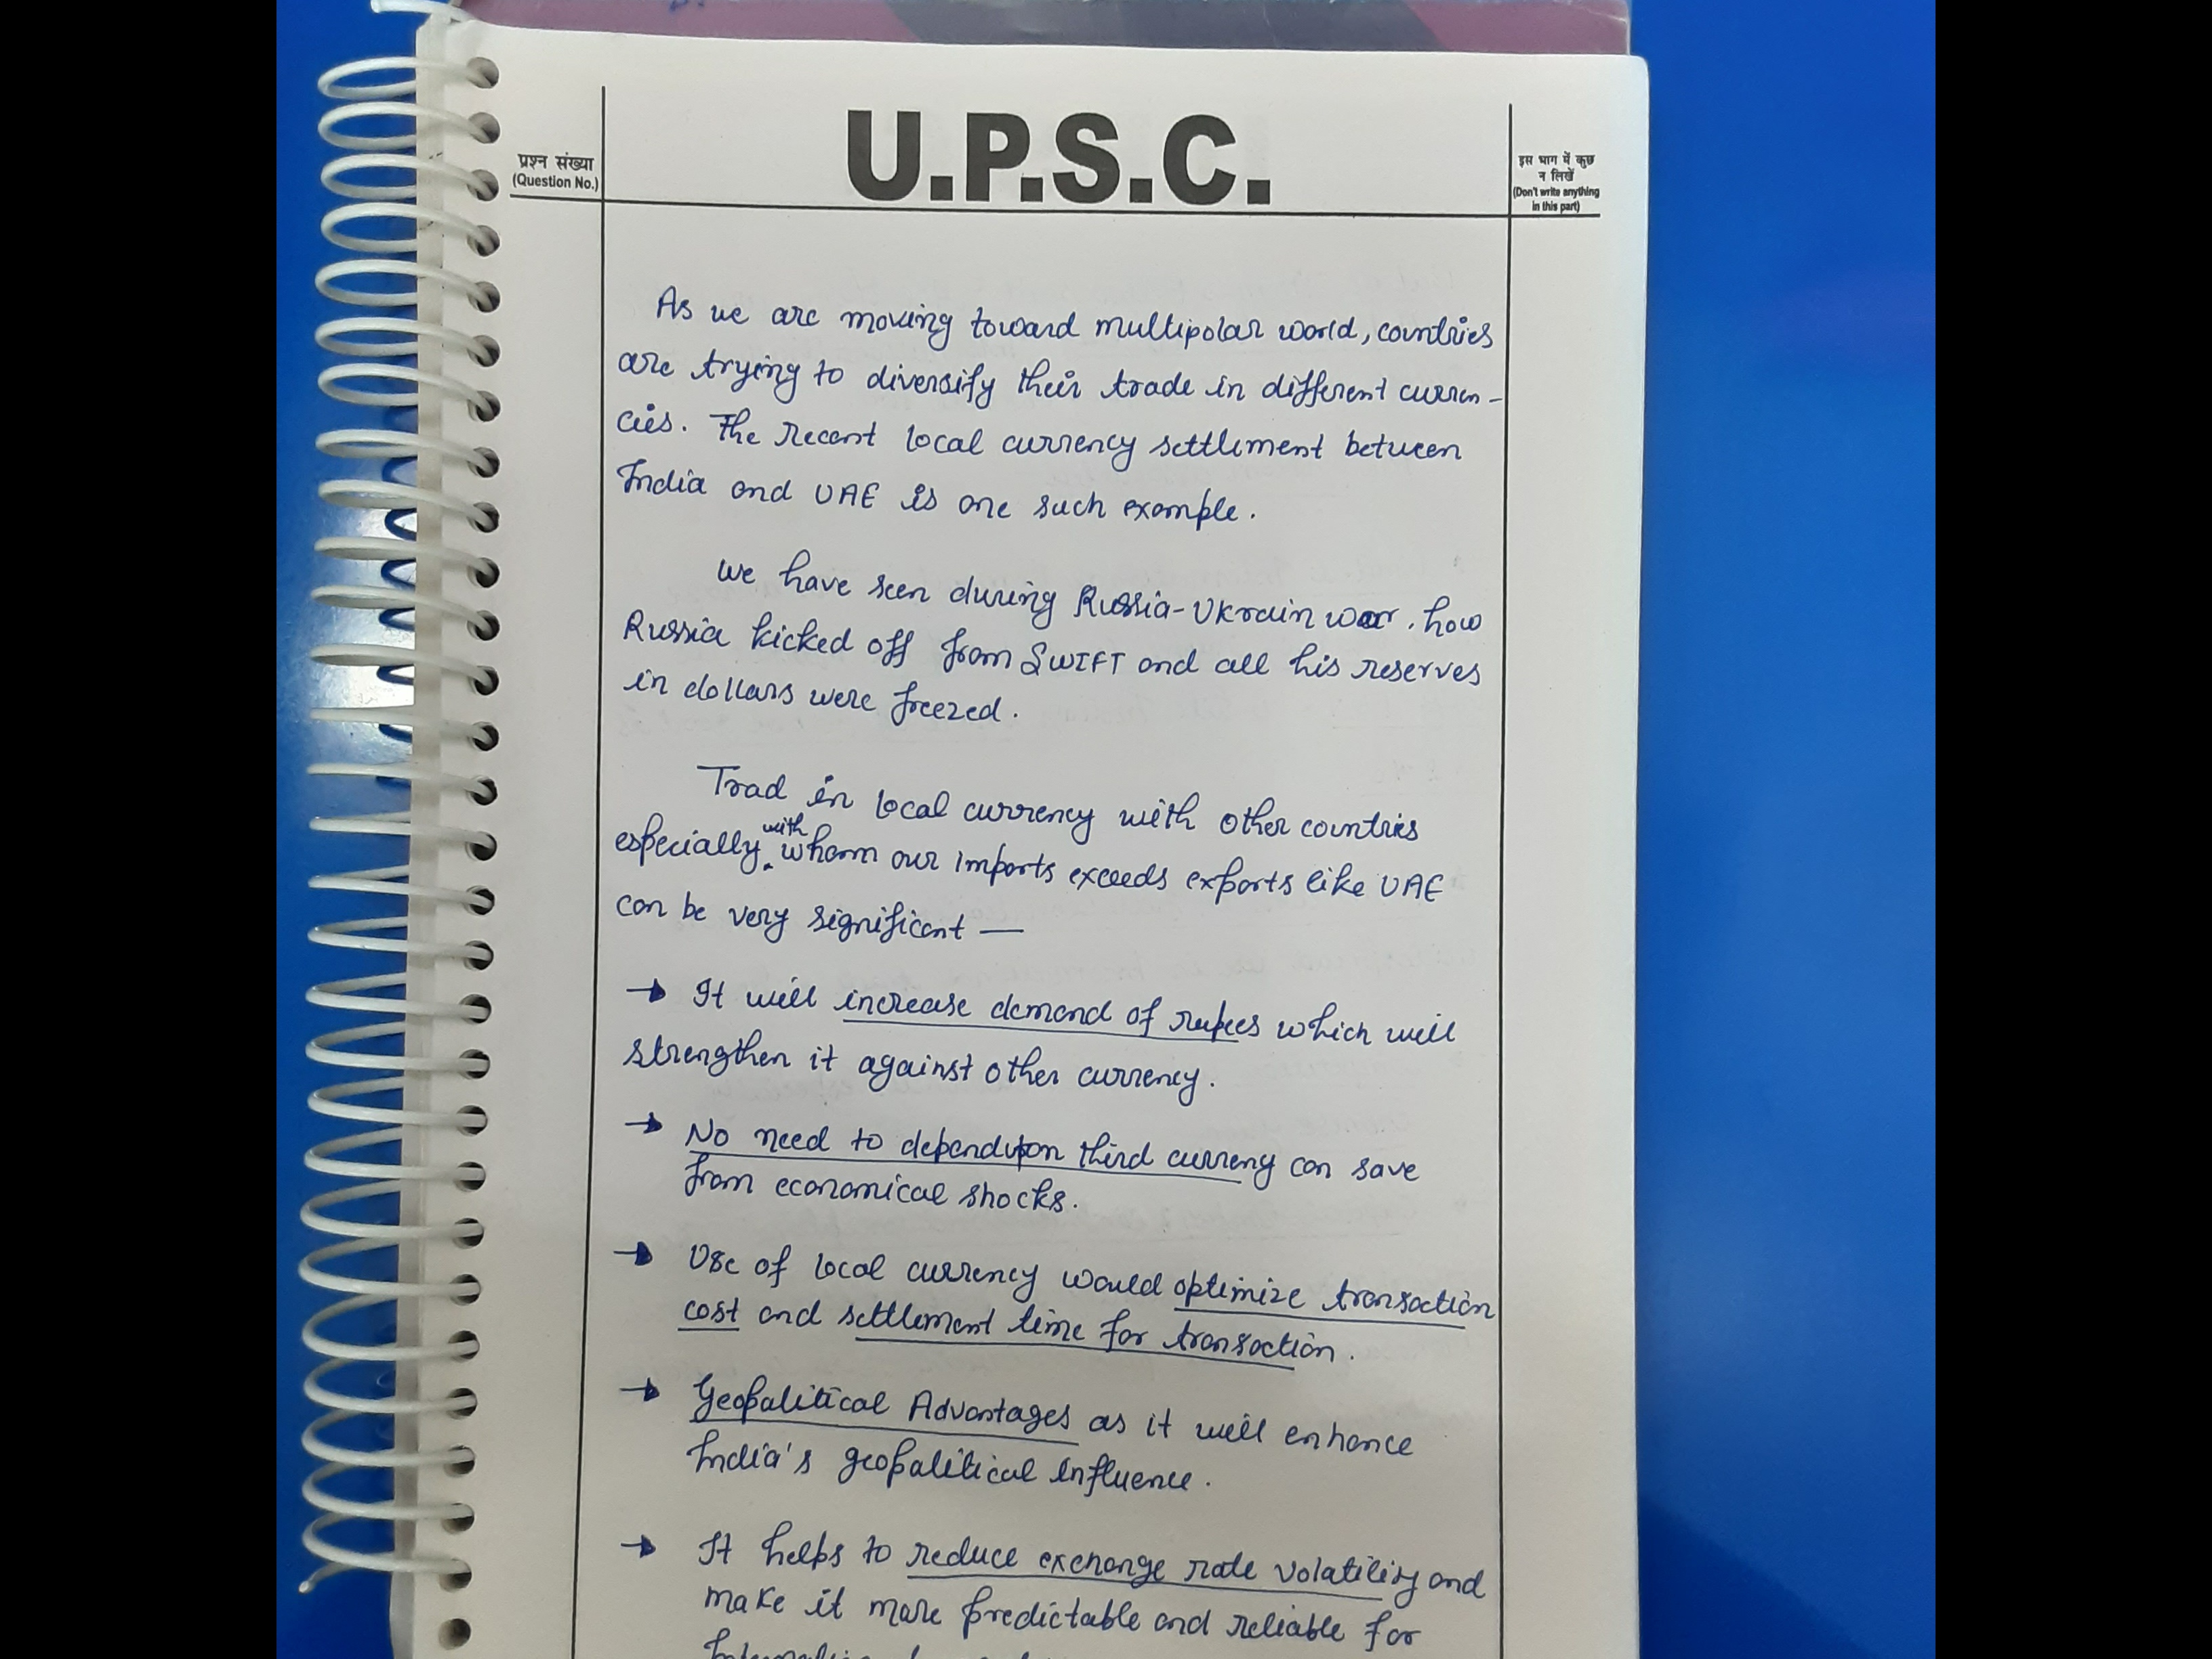 U.P.S.C.
प्रश्न संख्या
(Question No.)
इस भाग में कुछ
न लिखें
(Don't write anything
in this part)
As we are moving toward multipolar world, countries
are trying to diversify their trade in different curren-
cies. The recent local currency settlement between
India and UAE is one such example.
We have seen during Russia-Ukrain war, how
Russia kicked off from SWIFT and all his reserves
in dollars were freezed.
Trad in local currency with other countries
especially with whom our imports exceeds exports like UAE
can be very significant —
→ It will increase demand of rupees which will
strengthen it against other currency.
→ No need to depend upon third curreny can save
from economical shocks.
→ Use of local currency would optimize transaction
cost and settlement time for transaction.
→ Geopolitical Advantages as it will enhance
India's geopolitical influence.
→ It helps to reduce exchange rate volatility and
make it more predictable and reliable for